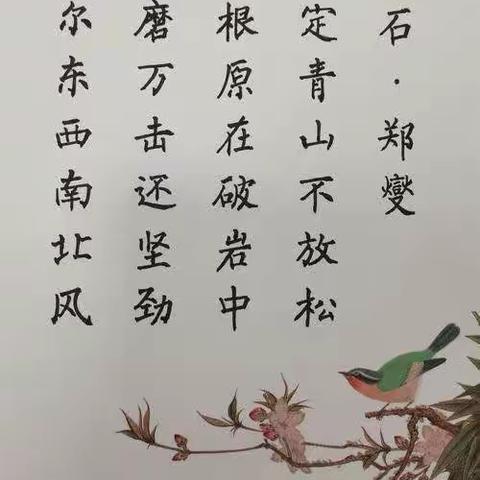 石·郑燮
定青山不放松
根原在破岩中
磨万击还坚劲
尔东西南北风